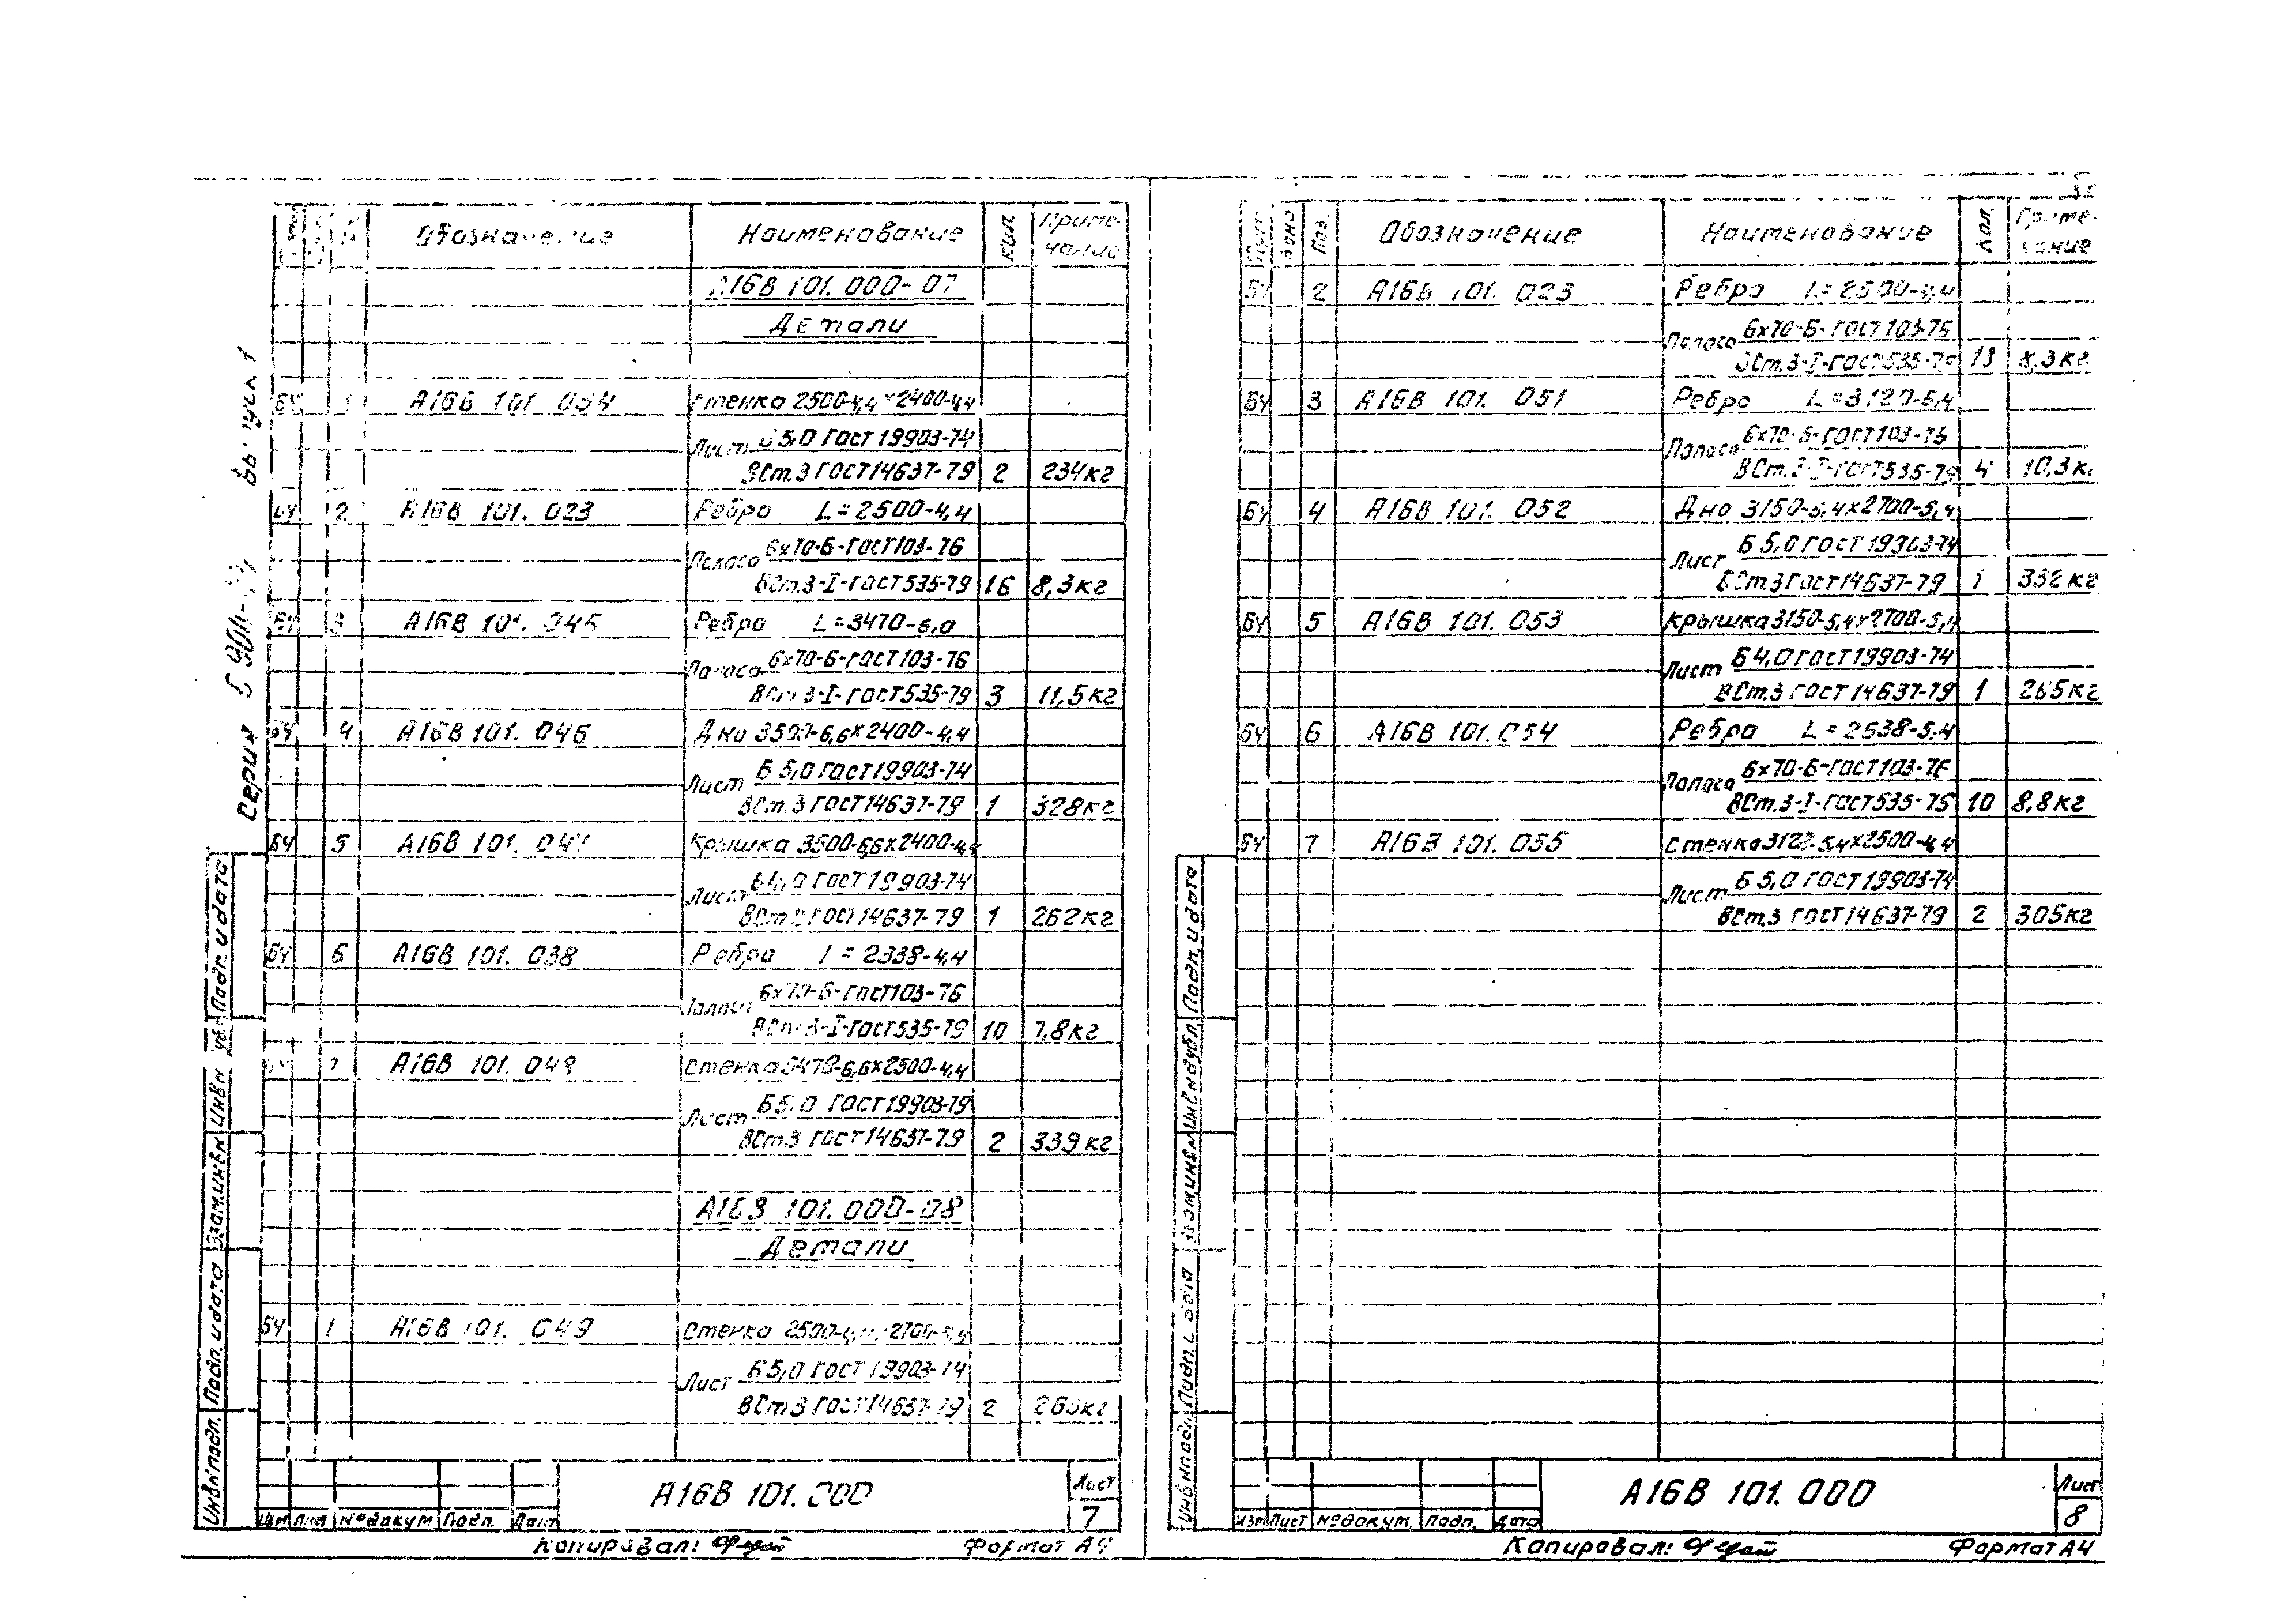 Обозначение Наименование Кол. Приме-
чание
А16В 101.000-07
Детали
БЧ 1 А16В 101. 034 Стенка 2500-4,4×2400-4,4
Лист Б 5,0 ГОСТ 19903-74
ВСт.3 ГОСТ 14637-79 2 234кг
БЧ 2 А16В 101. 023 Ребро L=2500-4,4
Полоса 6×70-Б-ГОСТ103-76
ВСт.3-I-ГОСТ535-79 16 8,3кг
БЧ 3 А16В 101. 045 Ребро L=3470-6,0
Полоса 6×70-Б-ГОСТ103-76
ВСт.3-I-ГОСТ535-79 3 11,5кг
БЧ 4 А16В 101. 046 Дно 3500-6,6×2400-4,4
Лист Б 5,0 ГОСТ19903-74
ВСт.3 ГОСТ14637-79 1 328кг
БЧ 5 А16В 101. Крышка 3500-6,6×2400-4,4
Лист Б4,0 ГОСТ19903-74
ВСт.3 ГОСТ14637-79 1 262кг
БЧ 6 А16В 101. 038 Ребро L = 2338-4,4
Полоса 6×70-Б-ГОСТ103-76
ВСт.3-I-ГОСТ535-79 10 7,8кг
БЧ 7 А16В 101. 048 Стенка 3478-6,6×2500-4,4
Лист Б5,0 ГОСТ19903-79
ВСт.3 ГОСТ14637-79 2 339кг
А16В 101.000-08
Детали
БЧ 1 А16В 101. 049 Стенка 2500-4,4×2700-5,4
Лист Б5,0 ГОСТ 19903-74
ВСт3 ГОСТ14637-79 2
А16В 101.000
Лист
7
Изм Лист №докум Подп. Дата
Копировал: Формат А4
Серия выпуск 1
Инв.№подл. Подп. и дата Взам.инв.№ Инв.№дубл. Подп. и дата
Форм. Зона Поз. Обозначение Наименование Кол. Приме-
чание
БЧ 2 А16В 101. 023 Ребро L=2500-4,4
Полоса 6×70-Б-ГОСТ103-76
ВСт.3-I-ГОСТ535-79 13 8,3кг
БЧ 3 А16В 101. 051 Ребро L=3120-5,4
Полоса 6×70-Б-ГОСТ103-76
ВСт.3-I-ГОСТ535-79 4 10,3кг
БЧ 4 А16В 101. 052 Дно 3150-5,4×2700-5,4
Лист Б 5,0 ГОСТ 19903-74
ВСт.3 ГОСТ14637-79 1 332кг
БЧ 5 А16В 101. 053 Крышка 3150-5,4×2700-5,4
Лист Б 4,0 ГОСТ19903-74
ВСт.3 ГОСТ 14637-79 1 265кг
БЧ 6 А16В 101.054 Ребро L = 2638-5,4
Полоса 6×70-Б-ГОСТ103-76
ВСт.3-I-ГОСТ535-75 10 8,8кг
БЧ 7 А16В 101. 055 Стенка 3122-5,4×2500-4,4
Лист Б 5,0 ГОСТ19903-74
ВСт.3 ГОСТ 14637-79 2 305кг
А16В 101.000
Лист
8
Изм Лист №докум. Подп. Дата
Копировал: Формат А4
Инв.№подл. Подп. и дата Взам.инв.№ Инв.№дубл. Подп. и дата